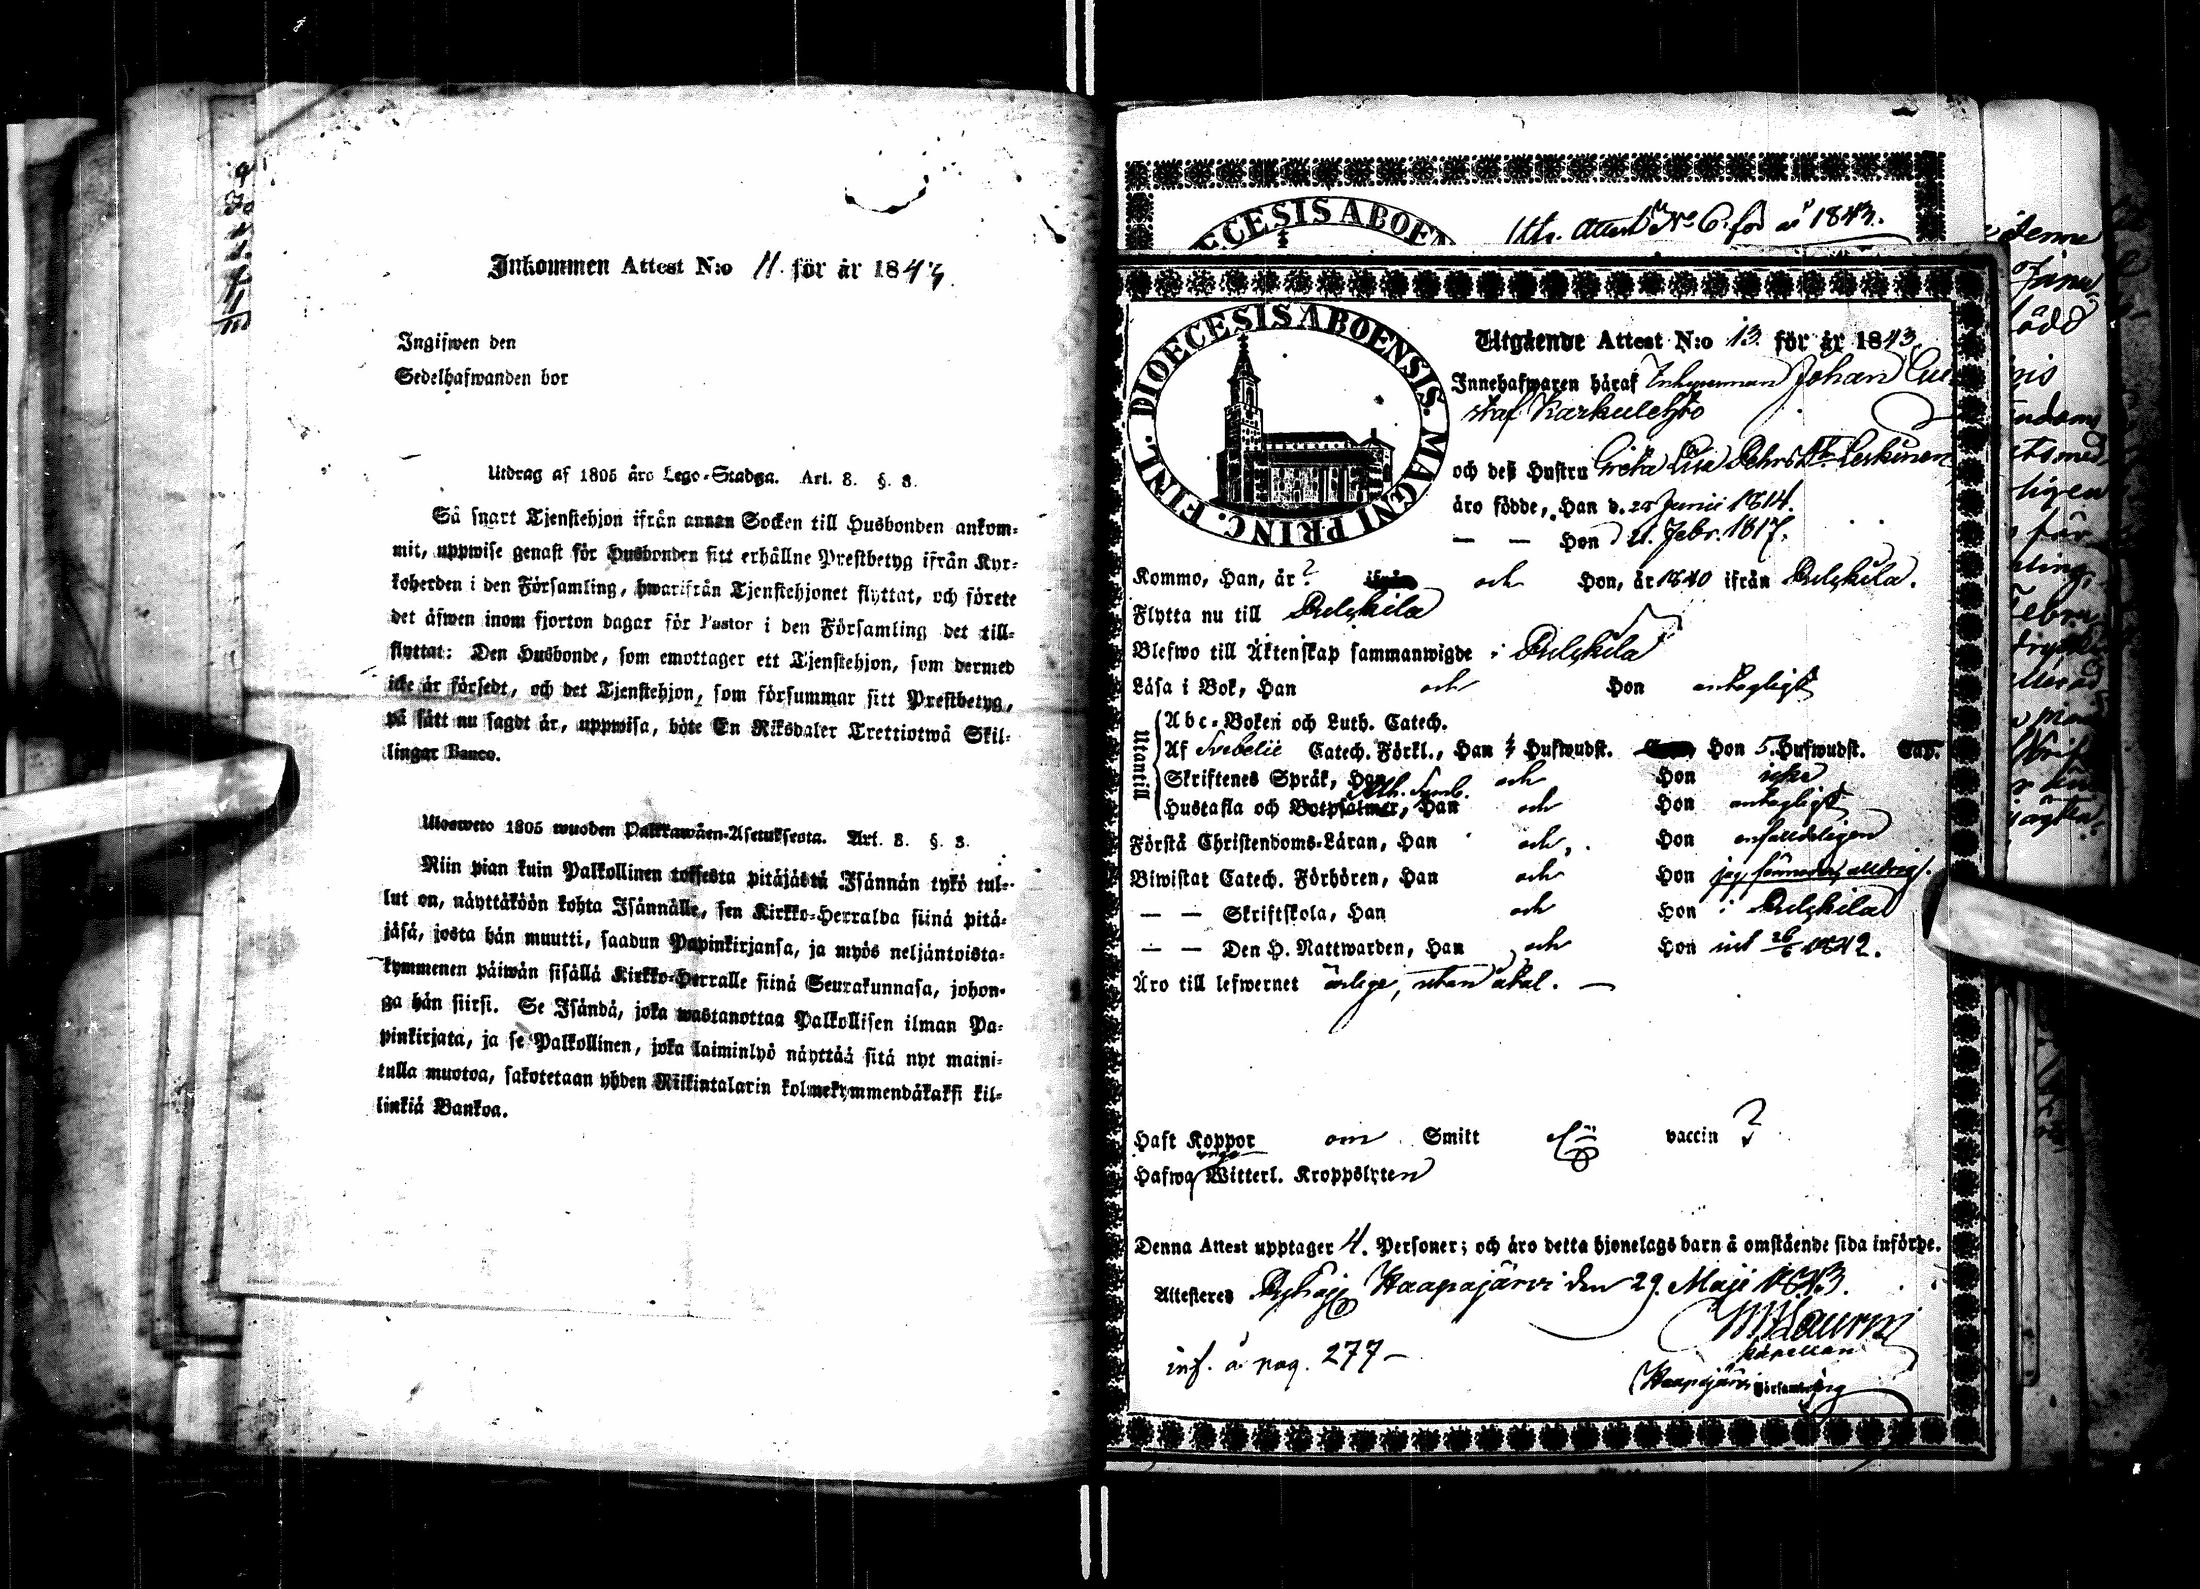 Inkommen Attest N:o 11. för år 1843.
Ingifwen den
Sedelhafwanden bor
Utdrag af 1805 års Lego-Stadga. Art. 8. §. 8.
Så snart Tjenstehjon ifrån annan Socken till Husbonden ankom-
mit, uppwise genast för Husbonden sitt erhållne Prestbetyg ifrån Kyr-
koherden i den Församling, hwarifrån Tjenstehjonet flyttat, och förete
det äfwen inom fjorton dagar för Pastor i den Församling det till-
flyttat: Den Husbonde, som emottager ett Tjenstehjon, som dermed
icke är försedt, och det Tjenstehjon, som försummar sitt Prestbetyg,
på sätt nu sagdt är, uppwisa, böte En Riksdaler Trettiotwå Skil-
lingar Banco.
Ulosweto 1805 wuoden Palkkawäen-Asetuksesta. Art. 8. §. 8.
Niin pian kuin Palkollinen toisesta pitäjästä Isännän tykö tul-
lut on, näyttäköön kohta Isännälle, sen Kirkko-Herralda siinä pitä-
jäsä, josta hän muutti, saadun Papinkirjansa, ja myös neljäntoista-
kymmenen päiwän sisällä Kirkko-Herralle siinä Seurakunnasa, johon-
ga hän siirsi. Se Isändä, joka wastanottaa Palkollisen ilman Pa-
pinkirjata, ja se Palkollinen, joka laiminlyö näyttää sitä nyt maini-
tulla muotoa, sakotetaan yhden Riikintalarin kolmekymmendäkaksi kil-
linkiä Bankoa.
DIOECESIS ABOEN
Attest No 6. för år 1843.
DIOECESIS ABOENSIS. MAGNI PRINC. FINL.
Utgående Attest N:o 13. för år 1843.
Innehafwaren häraf Inhysesman Johan Gu
staf Karkulehto
och deß Hustru Greta Lisa Pehrs Dr Leskinen
äro födde, Han d. 25 Junii 1814.
— — Hon d 21. Febr. 1817.
Kommo, Han, år ? och Hon, år 1840 ifrån Pulkkila.
Flytta nu till Pulkkila
Blefwo till Äktenskap sammanwigde i Pulkkila
Läsa i Bok, Han och Hon antagligt
Utantill
Abc-Boken och Luth. Catech.
Af Svebelii Catech. Förkl., Han Hufwudst. Hon 5. Hufwudst. Cap.
Skriftenes Språk, Han och Hon icke
Ath. Symb.
Hustafla och Botpsalmer, Han och Hon antagligt
Förstå Christendoms-Läran, Han och Hon enfaldeligen
Biwistat Catech. Förhören, Han och Hon
— — Skriftskola, Han och Hon i Pulkkila
— — Den H. Nattwarden, Han och Hon 1842.
Äro till lefwernet ärlige, utan åtal. —
Haft Koppor om Smitt vaccin ?
Hafwa inga Witterl. Kroppslyten
Denna Attest upptager 4. Personer; och äro detta hjonelags barn å omstående sida införde.
Attesteres Pyhäj. Haapajärvi den 29. Maji 1843.
Kapellan
Haapajärvi Församling
inf. å pag. 277 —